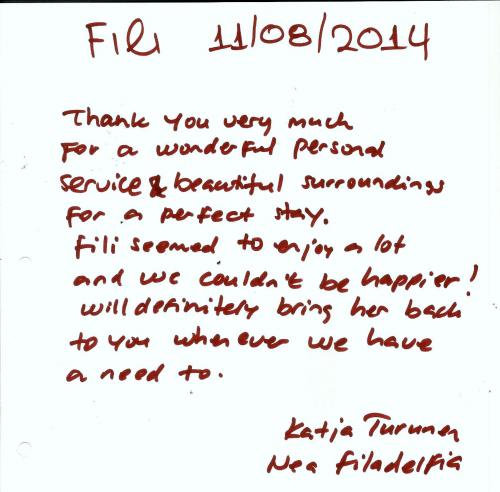 Fili 11/08/2014
Thank you very much
For a wonderful personal
service & beautiful surroundings
for a perfect stay.
Fili seemed to enjoy a lot
and we couldn't be happier!
will definitely bring her back
to you whenever we have
a need to.
Katja Turunen
Nea Filadelfia